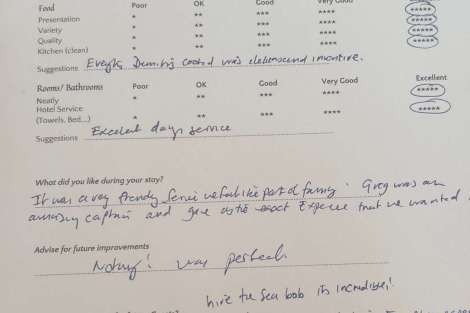 Food Poor OK Good Very Good
Presentation * ** *** **** *****
Variety * ** *** **** *****
Quality * ** *** **** *****
Kitchen (clean) * ** *** **** *****
Suggestions cooked was and inventive.
Rooms/ Bathrooms Poor OK Good Very Good Excellent
Neatly * ** *** **** *****
Hotel Service
(Towels, Bed...) * ** *** **** *****
Suggestions Excellent days service
What did you like during your stay?
It was a very friendly service we felt like part of family. Greg was an
amazing captain and gave us the exact experience that we wanted
Advise for future improvements
Nothing! was perfect
hire the Sea bob its incredible!